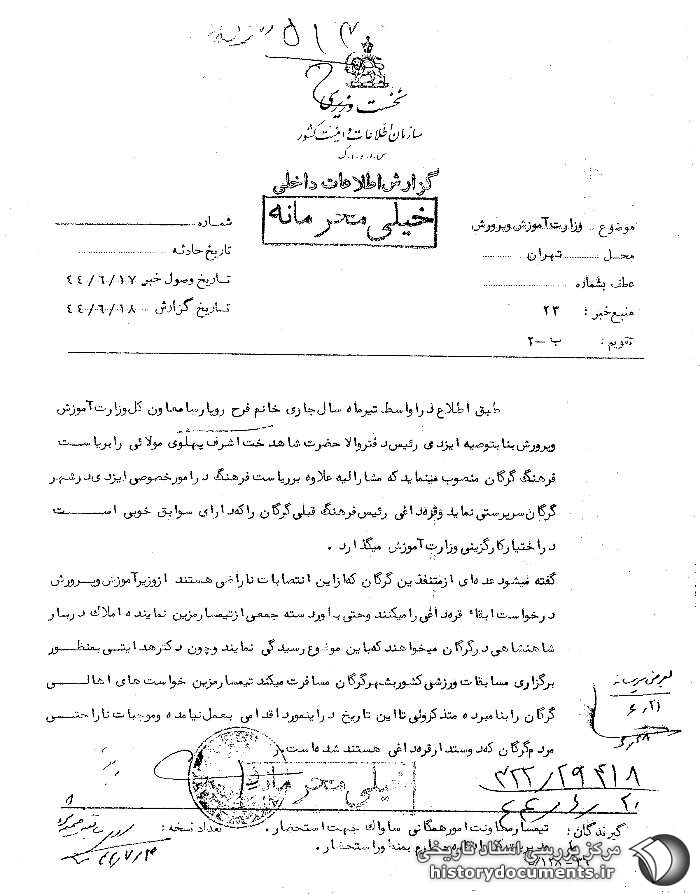 ۵۱۴
نخست وزیری
سازمان اطلاعات و امنیت کشور
س.ا.و.ا.ک
گزارش اطلاعات داخلی
خیلی محرمانه
موضوع وزارت آموزش وپرورش
محل تهران
عطف بشماره
منبع خبر : ۲۳
تقویم : ب -۲
شماره
تاریخ حادثه
تاریخ وصول خبر ۴۴/۶/۱۷
تاریخ گزارش ۴۴/۶/۱۸
طبق اطلاع در اواسط تیرماه سال جاری خانم فرخ روپارسا معاون کل وزارت آموزش
وپرورش بنا بتوصیه ایزدی رئیس دفتر والا حضرت شاهدخت اشرف پهلوی مولائی را بریاست
فرهنگ گرگان منصوب مینماید که مشارالیه علاوه بر ریاست فرهنگ در امور خصوصی ایزدی در شهر
گرگان سرپرستی نماید وقره داغی رئیس فرهنگ قبلی گرگان را که دارای سوابق خوبی است
در اختیار کارگزینی وزارت آموزش میگذارد .
گفته میشود عده ای از متنفذین گرگان که از این انتصابات ناراضی هستند از وزیر آموزش وپرورش
درخواست ابقاء قره داغی را میکنند وحتی بطور دسته جمعی از تیمسار مزین نماینده املاک دربار
شاهنشاهی در گرگان میخواهند که باین موضوع رسیدگی نمایند وچون دکتر هدایتی بمنظور
برگزاری مسابقات ورزشی کشور بشهر گرگان مسافرت میکند تیمسار مزین خواست های اهالی
گرگان را بنامبرده متذکر ولی تا این تاریخ در اینمورد اقدامی بعمل نیامده وموجبات ناراحتی
مردم گرگان که دوستدار قره داغی هستند شده است .
بعرض میرسد
۶/۲۱
خیلی محرمانه
۳۲۲/۲۹۴۱۸
۴۴/۶/۲۰
گیرندگان : تیمسار معاونت امور همگانی ساواک جهت استحضار . تعداد نسخه : ۵
بمنظور استحضار .
مرکز بررسی اسناد تاریخی
historydocuments.ir